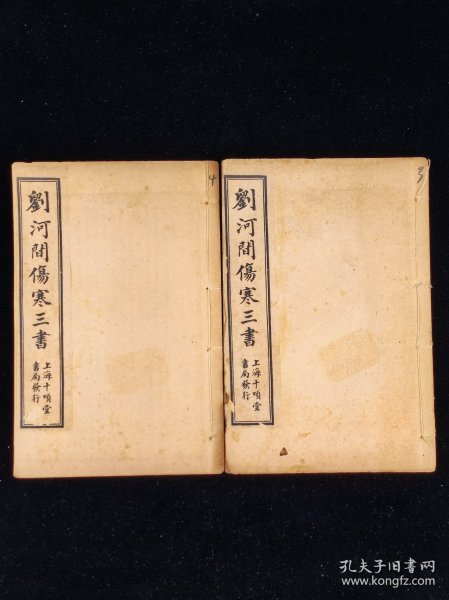 劉河間傷寒三書
上海千頃堂
書局發行
4
劉河間傷寒三書
上海千頃堂
書局發行
3
孔夫子旧书网
www.kongfz.com